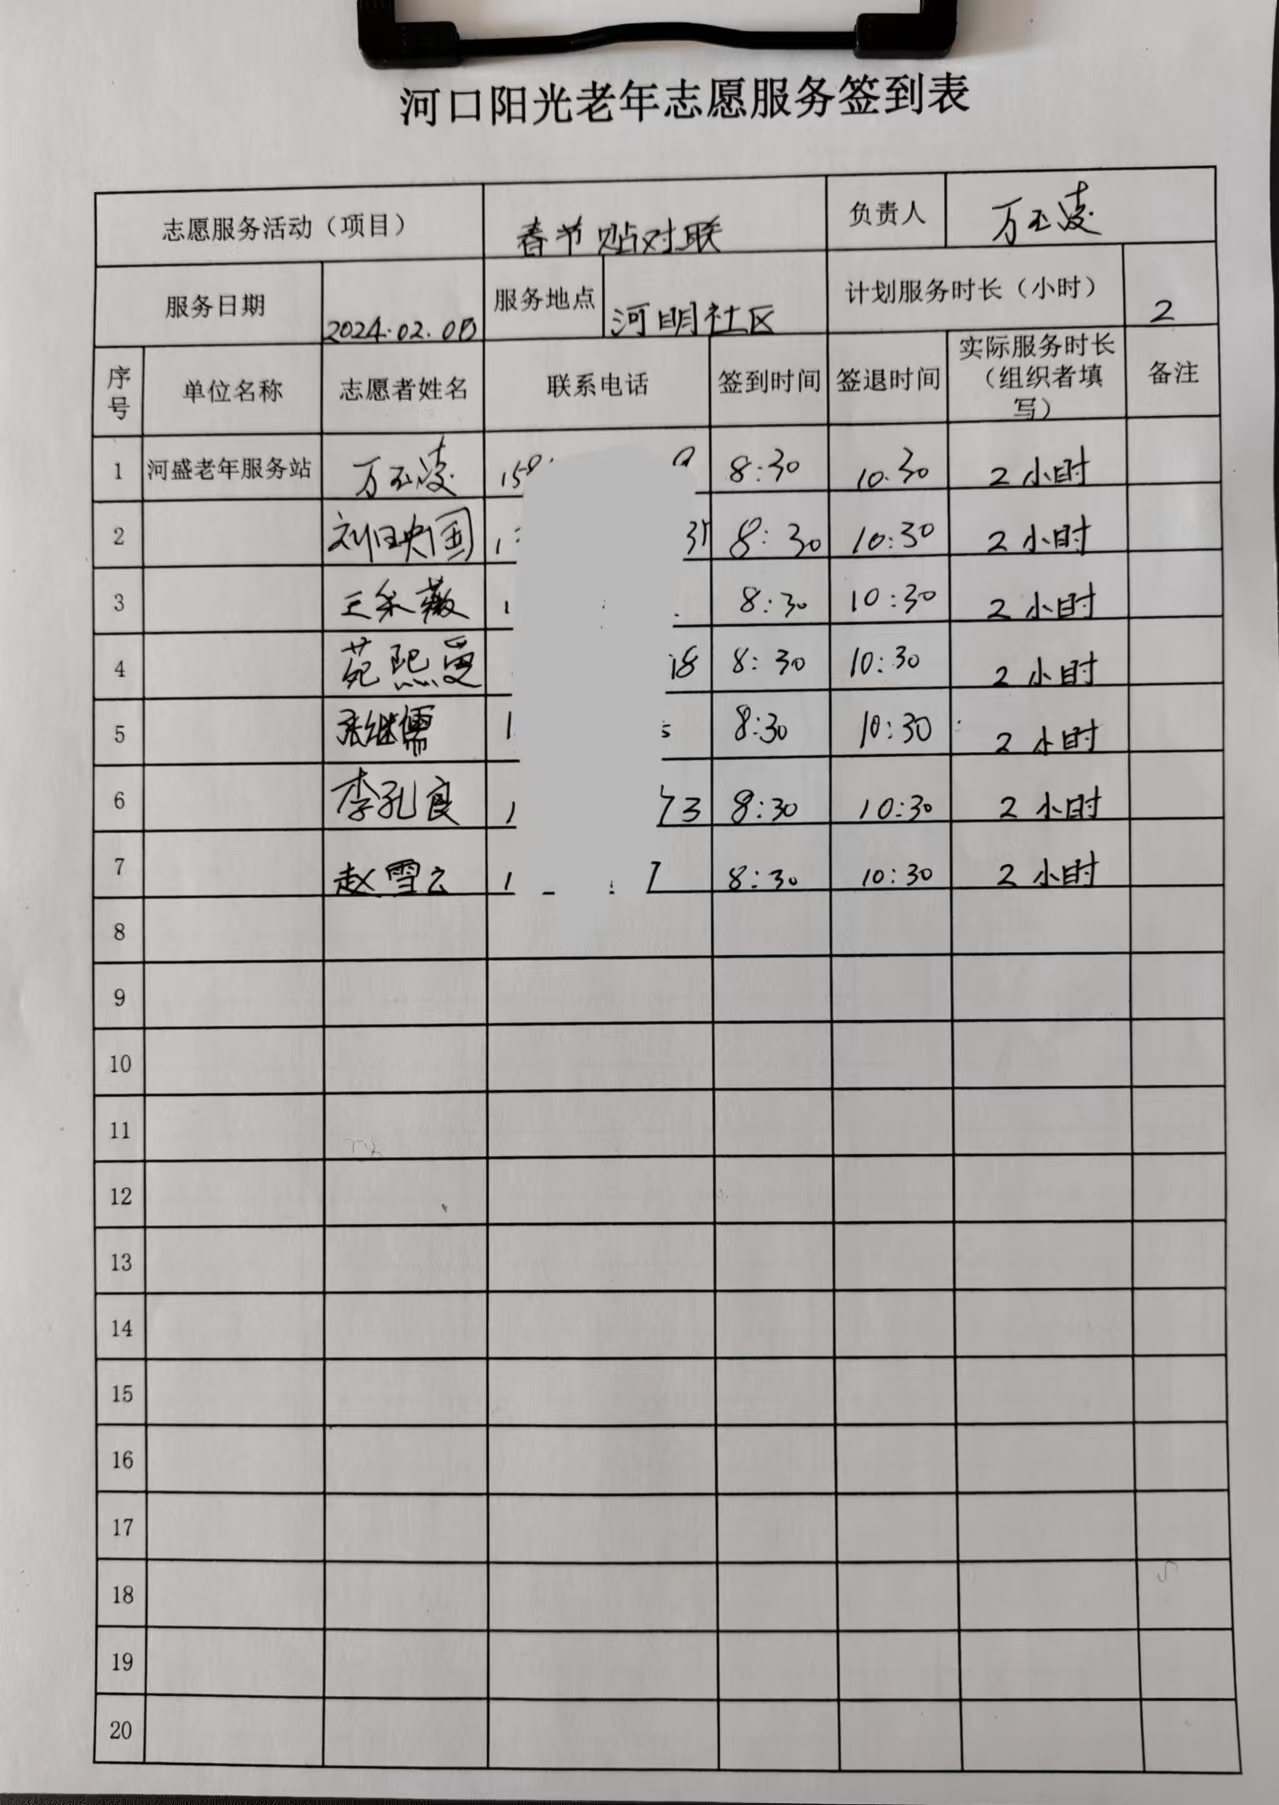 河口阳光老年志愿服务签到表
志愿服务活动（项目） 春节贴对联 负责人 万玉凌
服务日期 2024.02.08 服务地点 河明社区 计划服务时长（小时） 2
序号 单位名称 志愿者姓名 联系电话 签到时间 签退时间 实际服务时长（组织者填写） 备注
1 河盛老年服务站 万玉凌 8:30 10:30 2小时
2 刘日映国 8:30 10:30 2小时
3 王采薇 8:30 10:30 2小时
4 苑熙曼 18 8:30 10:30 2小时
5 张继儒 8:30 10:30 2小时
6 李孔良 73 8:30 10:30 2小时
7 赵雪云 7 8:30 10:30 2小时
8
9
10
11
12
13
14
15
16
17
18
19
20